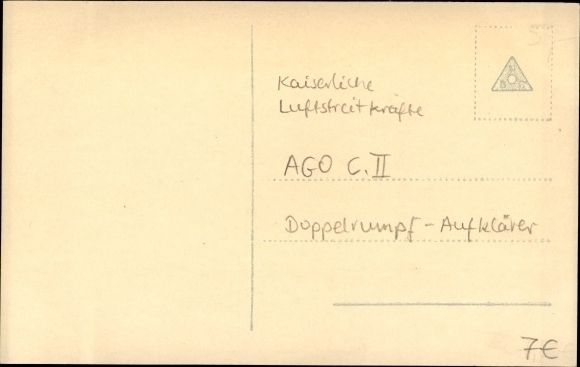 Kaiserliche
Luftstreitkräfte
AGO C.II
Doppelrumpf-Aufklärer
7€